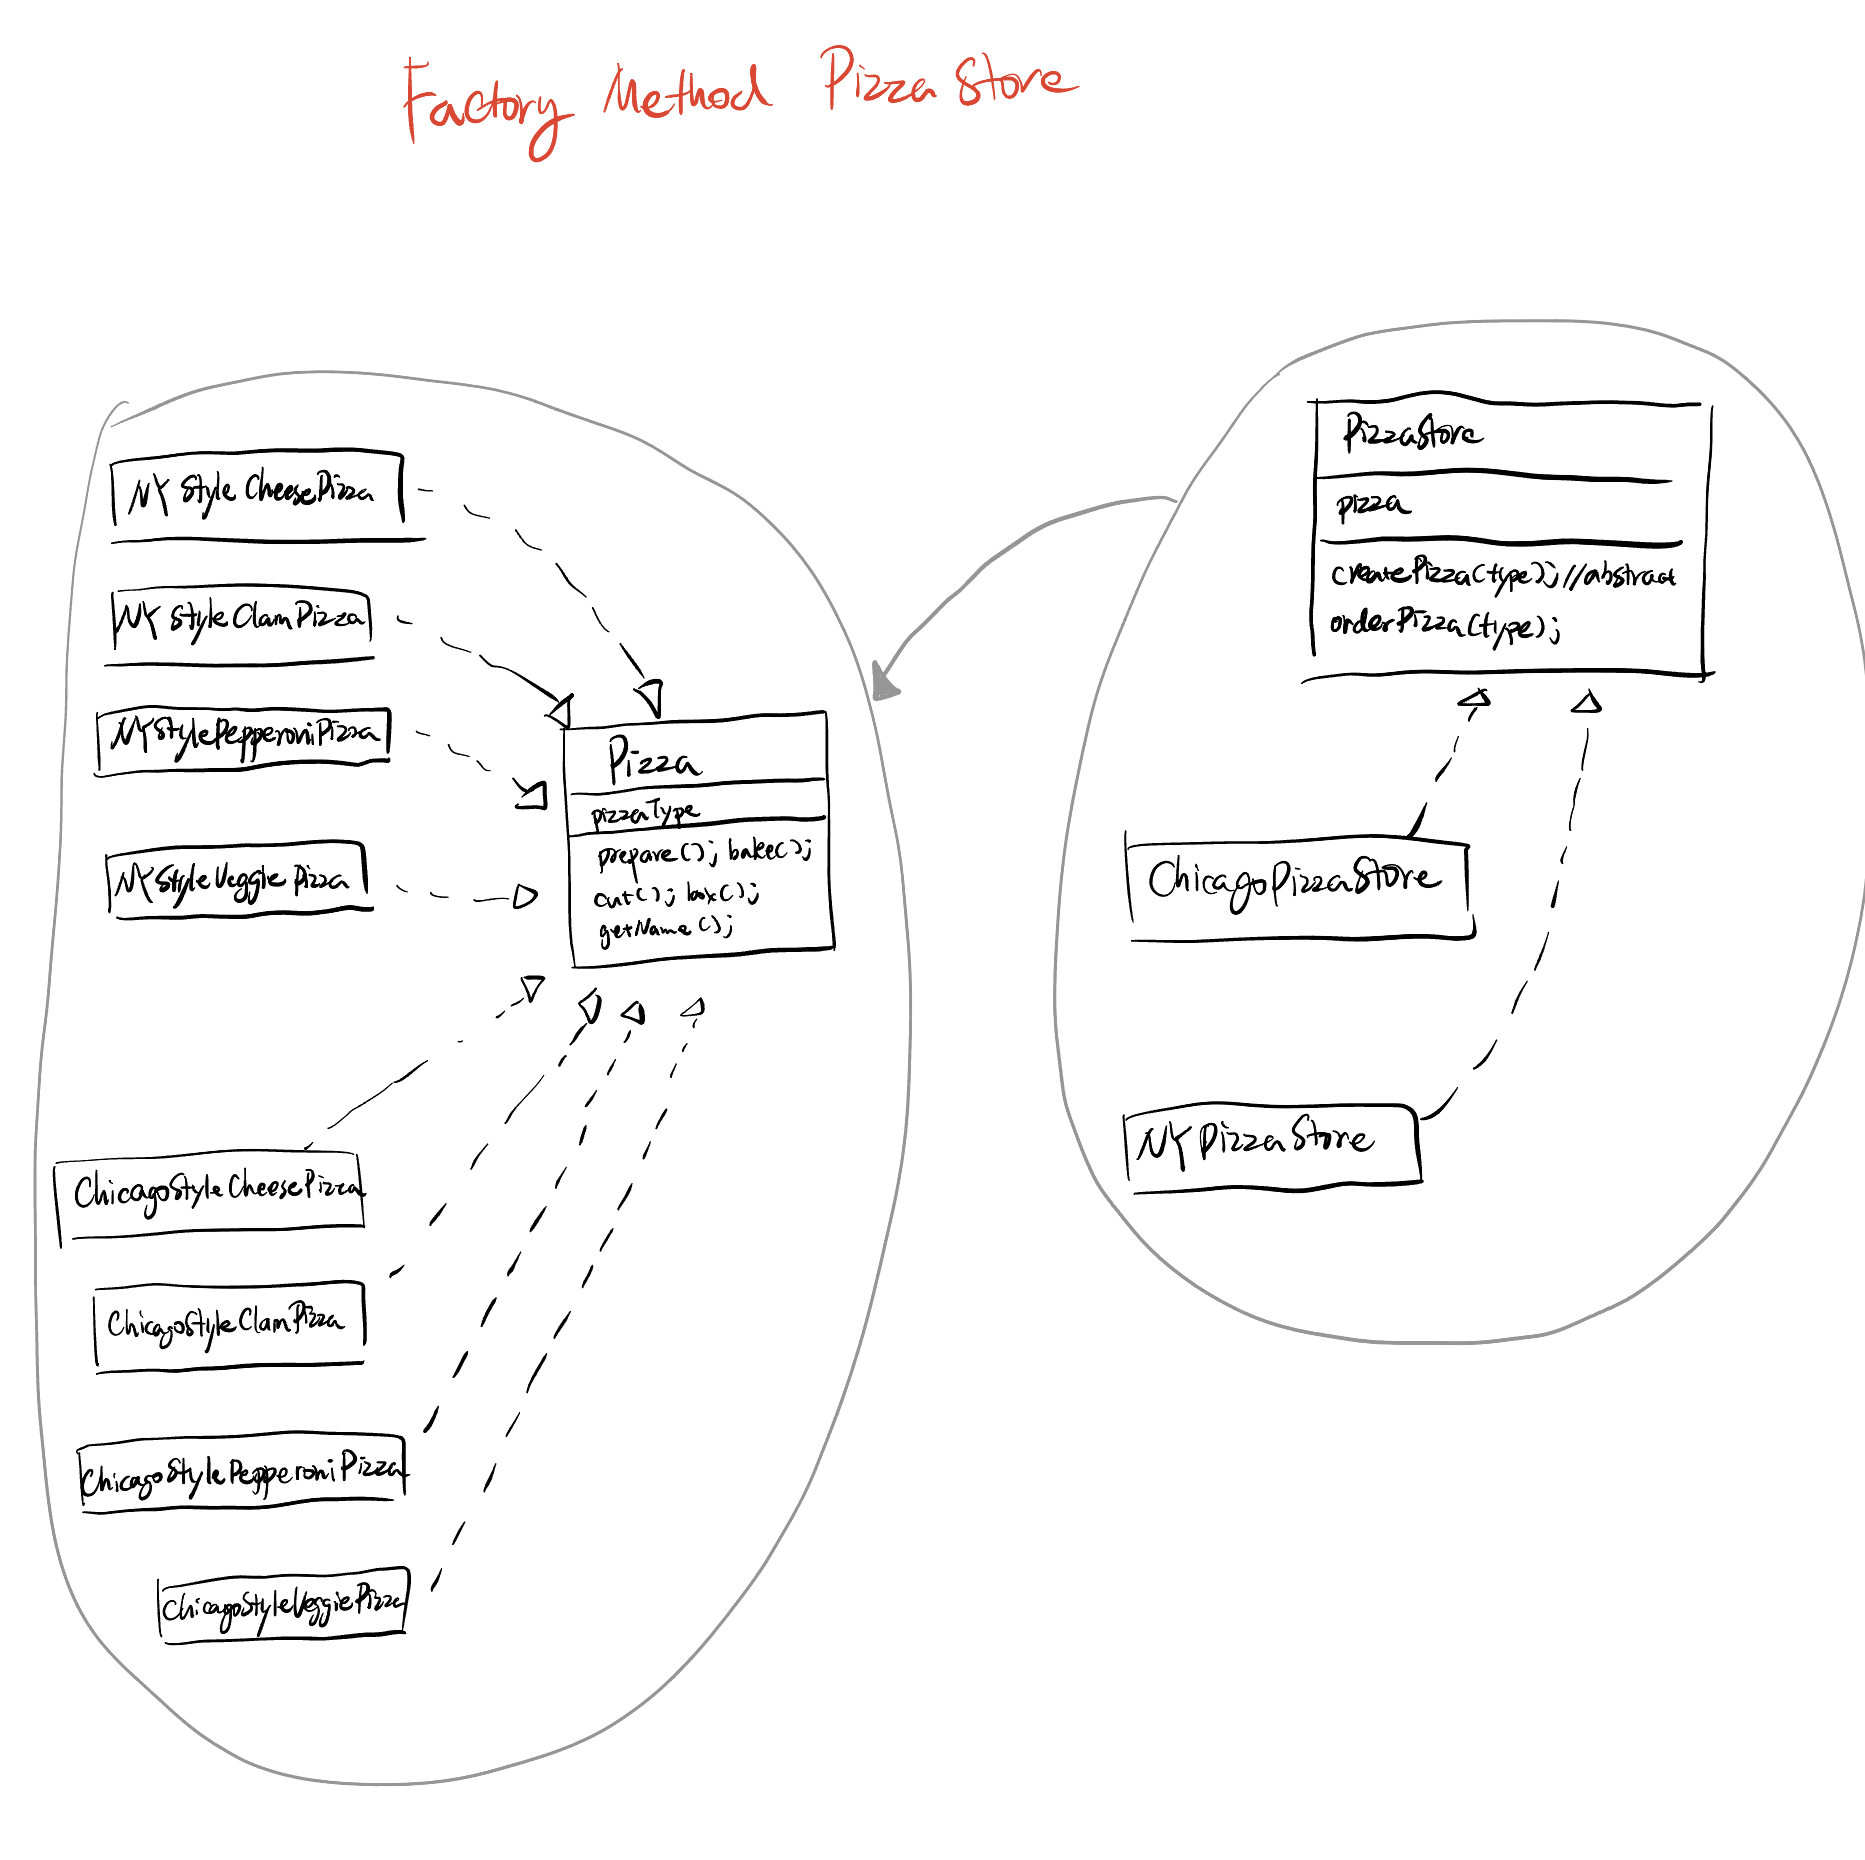 Factory Method Pizza Store
NYStyleCheesePizza
NYStyleClamPizza
NYStylePepperoniPizza
NYStyleVeggiePizza
Pizza
pizzaType
prepare(); bake();
cut(); box();
getName();
ChicagoStyleCheesePizza
ChicagoStyleClamPizza
ChicagoStylePepperoniPizza
ChicagoStyleVeggiePizza
PizzaStore
pizza
createPizza(type); //abstract
orderPizza(type);
ChicagoPizzaStore
NYPizzaStore